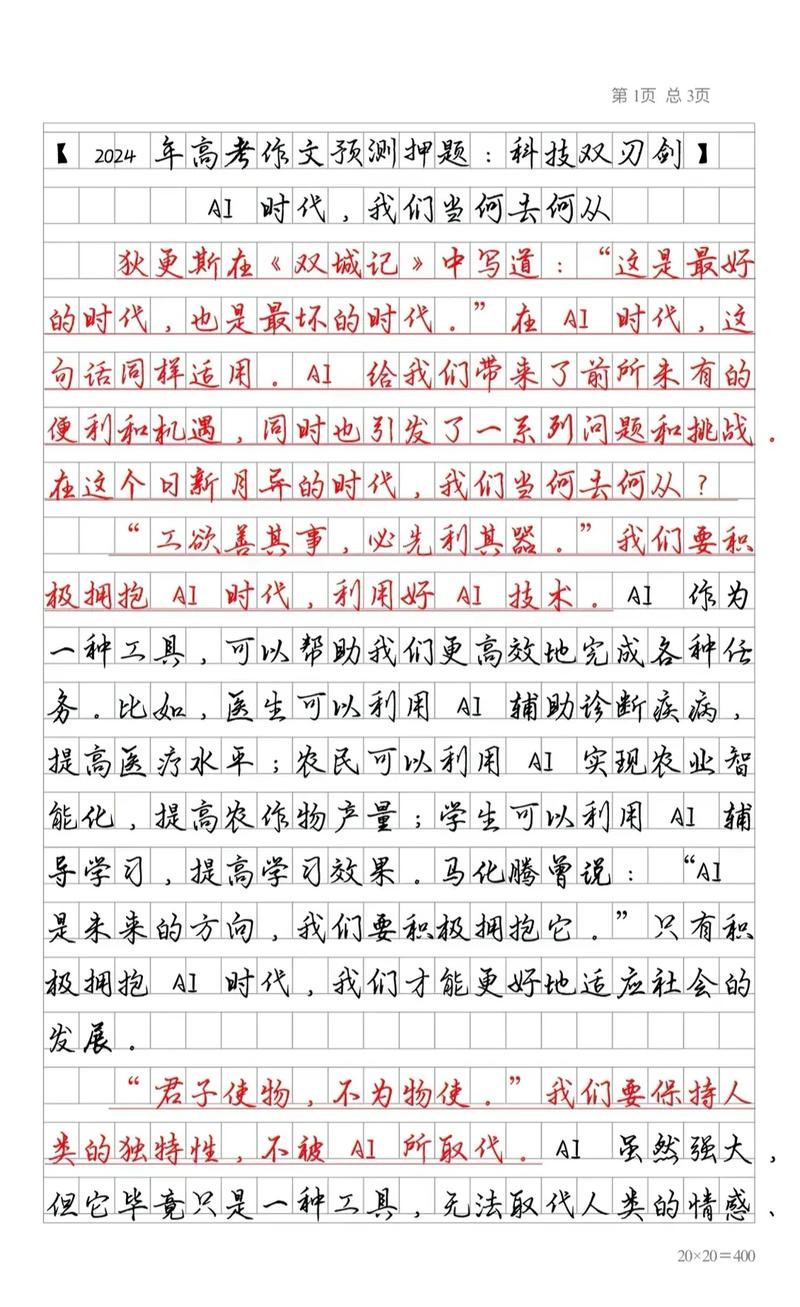 第1页 总3页
【 2024 年高考作文预测押题：科技双刃剑】
AI 时代，我们当何去何从
狄更斯在《双城记》中写道：“这是最好
的时代，也是最坏的时代。”在 AI 时代，这
句话同样适用。AI 给我们带来了前所未有的
便利和机遇，同时也引发了一系列问题和挑战。
在这个日新月异的时代，我们当何去何从？
“工欲善其事，必先利其器。”我们要积
极拥抱 AI 时代，利用好 AI 技术。AI 作为
一种工具，可以帮助我们更高效地完成各种任
务。比如，医生可以利用 AI 辅助诊断疾病，
提高医疗水平；农民可以利用 AI 实现农业智
能化，提高农作物产量；学生可以利用 AI 辅
导学习，提高学习效果。马化腾曾说：“AI
是未来的方向，我们要积极拥抱它。”只有积
极拥抱 AI 时代，我们才能更好地适应社会的
发展。
“君子使物，不为物使。”我们要保持人
类的独特性，不被 AI 所取代。AI 虽然强大，
但它毕竟只是一种工具，无法取代人类的情感、
20×20=400